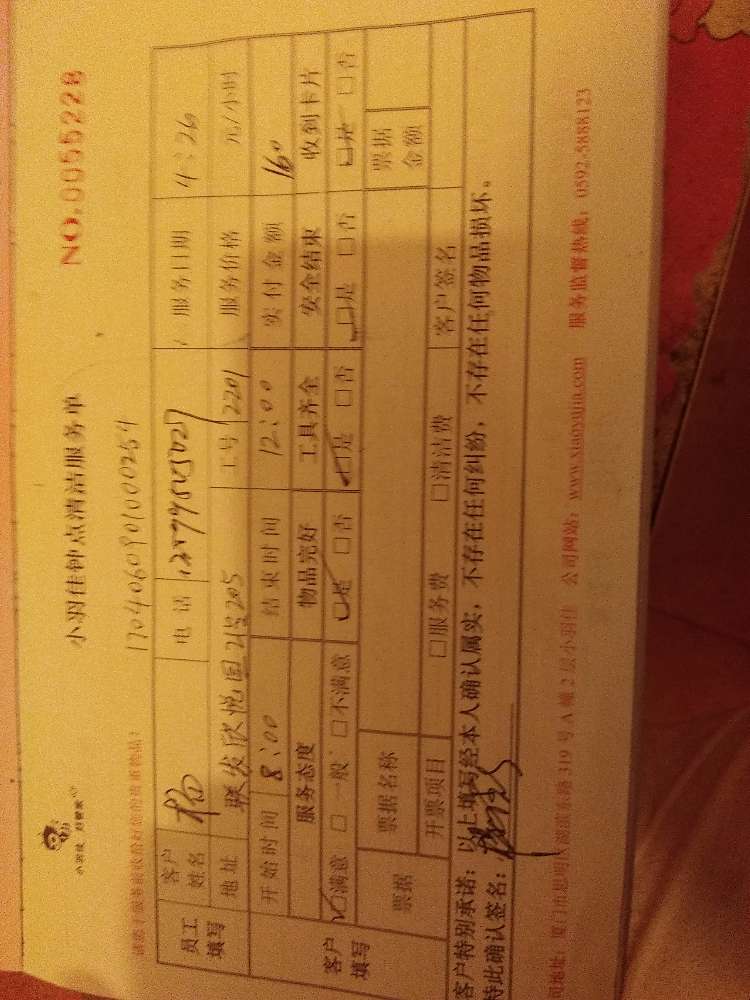 小羽佳 好管家
小羽佳钟点清洁服务单
NO.0055228
1704060901000254
员工填写 客户姓名 杨 电话 服务日期 4:26
地址 联发欣悦园21号205 工号 2201 服务价格 元/小时
开始时间 8:00 结束时间 12:00 实付金额 160
客户填写 服务态度 物品完好 工具齐全 安全结束 收到卡片
满意 一般 不满意 是 否 是 否 是 否 是 否
票据 票据名称 票据金额
开票项目 服务费 清洁费 客户签名
客户特别承诺：以上填写经本人确认属实，不存在任何纠纷，不存在任何物品损坏。
特此确认签名：
地址：厦门市思明区湖滨东路319号A幢2层小羽佳 公司网站：www.xiaoyujia.com 服务监督热线：0592.5888123